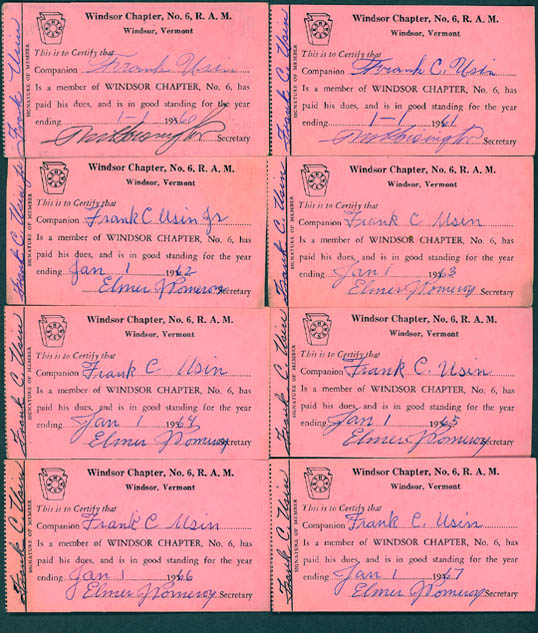 Frank Usin
SIGNATURE OF MEMBER
Windsor Chapter, No. 6, R. A. M.
Windsor, Vermont
This is to Certify that
Companion Frank Usin
Is a member of WINDSOR CHAPTER, No. 6, has
paid his dues, and is in good standing for the year
ending 1-1 1960
Secretary
Frank C. Usin
SIGNATURE OF MEMBER
Windsor Chapter, No. 6, R. A. M.
Windsor, Vermont
This is to Certify that
Companion Frank C. Usin
Is a member of WINDSOR CHAPTER, No. 6, has
paid his dues, and is in good standing for the year
ending 1-1 1961
Secretary
Frank C Usin Jr
SIGNATURE OF MEMBER
Windsor Chapter, No. 6, R. A. M.
Windsor, Vermont
This is to Certify that
Companion Frank C Usin Jr
Is a member of WINDSOR CHAPTER, No. 6, has
paid his dues, and is in good standing for the year
ending Jan 1 1962
Elmer J Pomeroy Secretary
Frank C Usin
SIGNATURE OF MEMBER
Windsor Chapter, No. 6, R. A. M.
Windsor, Vermont
This is to Certify that
Companion Frank C Usin
Is a member of WINDSOR CHAPTER, No. 6, has
paid his dues, and is in good standing for the year
ending Jan 1 1963
Elmer J Pomeroy Secretary
Frank C. Usin
SIGNATURE OF MEMBER
Windsor Chapter, No. 6, R. A. M.
Windsor, Vermont
This is to Certify that
Companion Frank C Usin
Is a member of WINDSOR CHAPTER, No. 6, has
paid his dues, and is in good standing for the year
ending Jan 1 1964
Elmer J Pomeroy Secretary
Frank C. Usin
SIGNATURE OF MEMBER
Windsor Chapter, No. 6, R. A. M.
Windsor, Vermont
This is to Certify that
Companion Frank C. Usin
Is a member of WINDSOR CHAPTER, No. 6, has
paid his dues, and is in good standing for the year
ending Jan 1 1965
Elmer J Pomeroy Secretary
Frank C Usin
SIGNATURE OF MEMBER
Windsor Chapter, No. 6, R. A. M.
Windsor, Vermont
This is to Certify that
Companion Frank C Usin
Is a member of WINDSOR CHAPTER, No. 6, has
paid his dues, and is in good standing for the year
ending Jan 1 1966
Elmer J Pomeroy Secretary
Frank C Usin
SIGNATURE OF MEMBER
Windsor Chapter, No. 6, R. A. M.
Windsor, Vermont
This is to Certify that
Companion Frank C. Usin
Is a member of WINDSOR CHAPTER, No. 6, has
paid his dues, and is in good standing for the year
ending Jan 1 1967
Elmer J Pomeroy Secretary